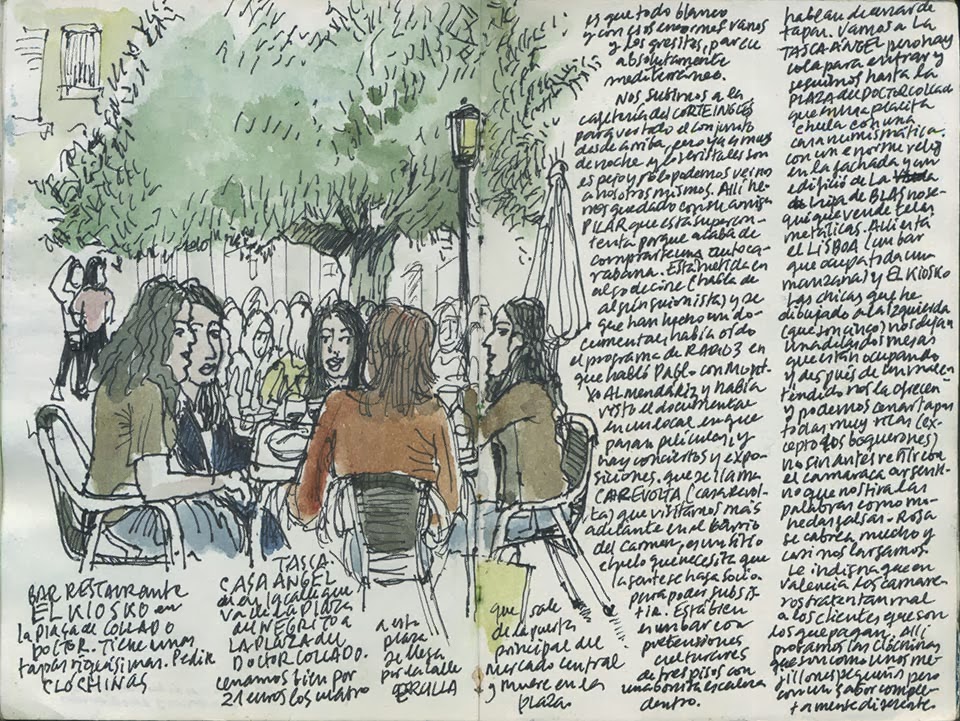 BAR RESTAURANTE
EL KIOSKO en
la PlaÇa de COLLADO
DOCTOR. Tiene unas
tapas riquísimas. Pedir
CLOCHINAS
TASCA
CASA ANGEL
en la calle que
va de la PLAZA
del NEGRITO a
LA PLAZA DEL
DOCTOR COLLADO.
cenamos bien por
21 euros los cuatro
a esta
plaza
se llega
por la calle
ERCILLA
que sale
de la puerta
principal del
mercado central
y muere en la
plaza
es que todo blanco
y con esos enormes vanos
y los gresitos, parece
absolutamente
mediterraneo.
Nos subimos a la
cafeteria del CORTE INGLÉS
para ver todo el conjunto
desde arriba, pero ya es muy
de noche y los cristales son
espejo y solo podemos vernos
a nosotros mismos. Allí he-
mos quedado con su amiga
PILAR que está supercon-
tenta porque acaba de
comprarse una autoca-
rabana. Está metida en
algo de cine (habla de
algún guionista) y se
que han hecho un do-
cumental, había oído
el programa de RADIO 3 en
que habló Pablo con
ALMENDARIZ y había
visto el documental
en un local en que
pasan películas, y
hay conciertos y expo-
siciones, que se llama
CA REVOLTA (casa Revol-
ta) que visitamos más
adelante en el barrio
del Carmen, es un sitio
chulo que necesita que
la gente se haga socio
para poder subsis-
tir. Está bien
es un bar con
pretensiones
culturales
de tres pisos con
una bonita escalera
dentro.
hablan de cenar de
tapas. Vamos a la
TASCA ANGEL pero hay
cola para entrar y
seguimos hasta la
PLAZA del DOCTOR COLLADO
que en una placita
chula con una
casa numismática.
con un enorme reloj
en la fachada y un
edificio de La
hija de BLAS no se
qué que vende telas
metálicas. Allí está
el LISBOA (un bar
que ocupa toda una
manzana) y EL KIOSKO
Las chicas que he
dibujado a la izquierda
(que son cinco) nos dejan
una de las dos mesas
que están ocupando
y después de un malen-
tendido nos la ofrecen
y podemos cenar tapas
todas muy ricas (ex-
cepto los boquerones)
no sin antes reñir con
el camarero argenti-
no que nos tira las
palabras como mo-
nedas falsas. Rosa
se cabrea mucho y
casi nos largamos
Le indigna que en
valencia los camare-
ros traten tan mal
a los clientes que son
los que pagan. Allí
probamos las Clochinas
que son como unos me-
jillones pequeños pero
con un sabor comple-
tamente diferente.